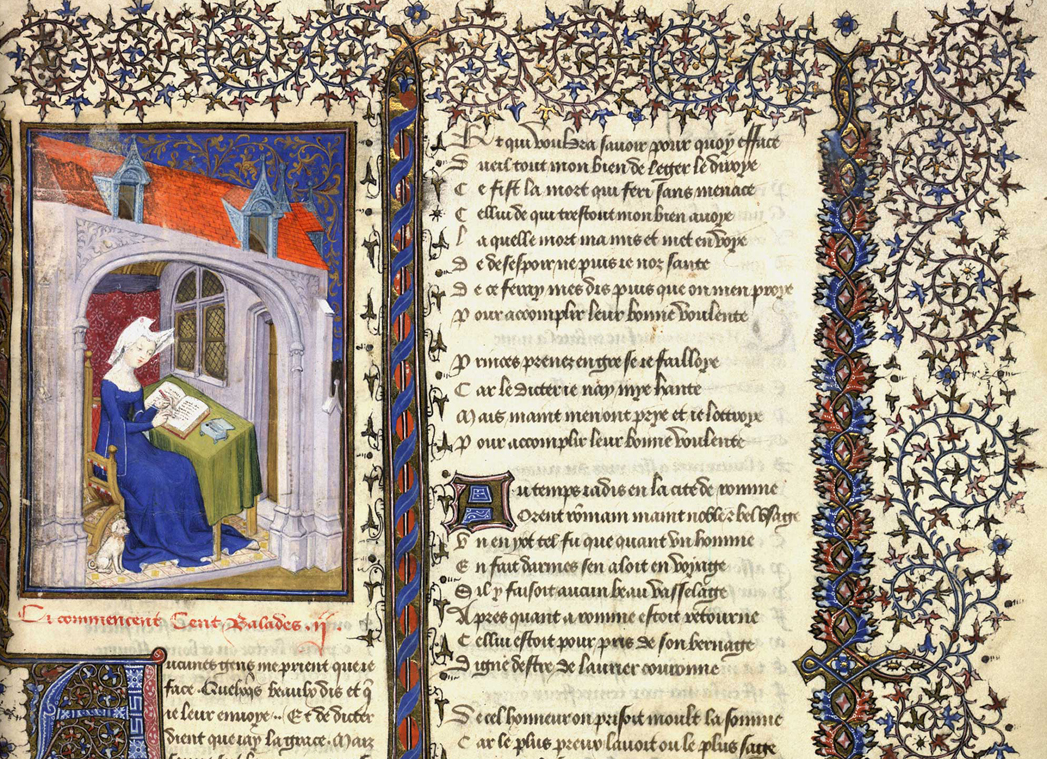 Ci commencent Cent Balades .ij.
Aucunes gens me prient que ie
face Quelqs beaulx dis et q̄
ie leur enuoye Et de dicter
dient que iay la grace Mais
Et qui vouldra sauoir pour quoy efface
Dueil tout mon bien de legier le diroye
Ce fist la mort qui feri sans menace
Cellui de qui trestout mon bien auoye
Laquelle mort ma mis et met en voye
De desespoir ne puis ie noz sante
De ce feray mes dis puis que on men proye
Pour accomplir leur bonne voulente
Princes prenez en gre se ie failloye
Car le dicter ie nay mye hante
Mais maint men ont prye et ie lottroye
Pour accomplir leur bonne voulente
Au temps iadis en la cite de romme
Orent rommains maint noble et bel vsage
Vn en yot tel fu que quant vn homme
En fait darmes sen aloit en voyage
Sil y faisoit aucun beau vasselage
Apres quant a romme estoit retourne
Cellui estoit pour pris de son bernage
Digne destre de laurier couronne
De cel honneur on prisoit moult la somme
Car le plus preux lauoit ou le plus sage